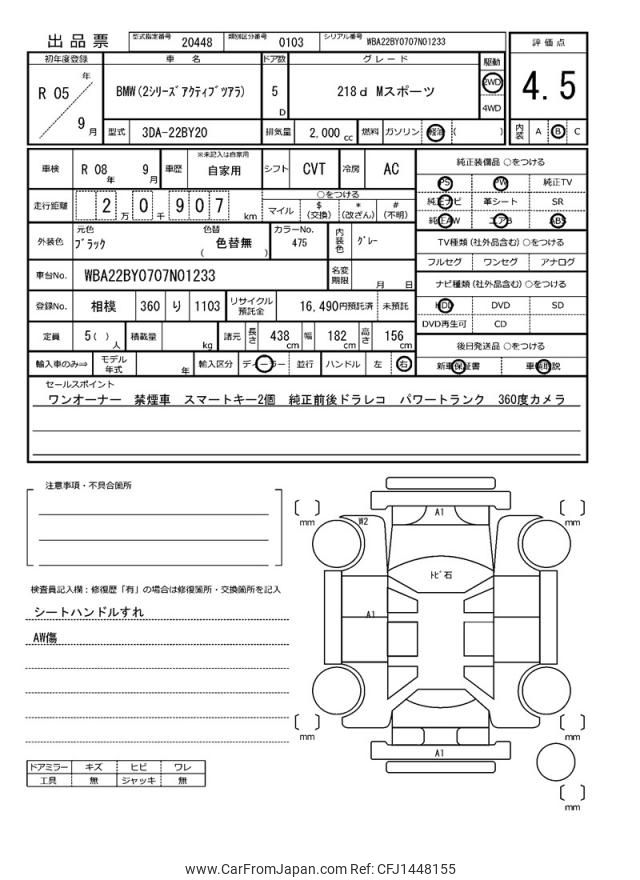 出品票
型式指定番号 20448 類別区分番号 0103 シリアル番号 WBA22BY0707N01233
評価点
4.5
内装 A B C
初年度登録 車名 ドア数 グレード 駆動
R 05 年 9 月
BMW(2シリーズアクティブツアラ) 5 D 218d Mスポーツ 2WD
4WD
型式 3DA-22BY20 排気量 2,000 cc 燃料 ガソリン 軽油 ( )
車検 R 08 年 9 月 車歴 ※未記入は自家用 自家用 シフト CVT 冷房 AC
走行距離 2 万 0 千 9 0 7 km
○をつける
マイル $ (交換) * (改ざん) # (不明)
外装色 元色 ブラック 色替 ( 色替無 ) カラーNo. 475 内装色 グレー
車台No. WBA22BY0707N01233 名変期限 月 日
登録No. 相模 360 り 1103 リサイクル預託金 16,490円預託済 未預託
定員 5( ) 人 積載量 kg 諸元 長さ 438 cm 幅 182 cm 高さ 156 cm
輸入車のみ⇒ モデル年式 年 輸入区分 ディーラー 並行 ハンドル 左 右
純正装備品 ○をつける
PS PW 純正TV
純正ナビ 革シート SR
純正AW エアB ABS
TV種類(社外品含む)○をつける
フルセグ ワンセグ アナログ
ナビ種類(社外品含む)○をつける
HDD DVD SD
DVD再生可 CD
後日発送品 ○をつける
新車保証書 車輌取説
セールスポイント
ワンオーナー 禁煙車 スマートキー2個 純正前後ドラレコ パワートランク 360度カメラ
注意事項・不具合箇所
検査員記入欄：修復歴「有」の場合は修復箇所・交換箇所を記入
シートハンドルすれ
AW傷
ドアミラー キズ ヒビ ワレ
工具 無 ジャッキ 無
A1
W2
トビ石
A1
A1
[ ] mm
[ ] mm
[ ] mm
[ ] mm
[ ] mm
www.CarFromJapan.com Ref: CFJ1448155